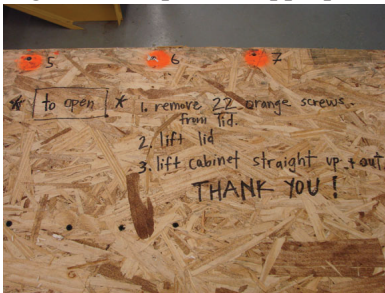 5 6 7
* to open * 1. remove 22 orange screws
from lid.
2. lift lid
3. lift cabinet straight up + out
THANK YOU!